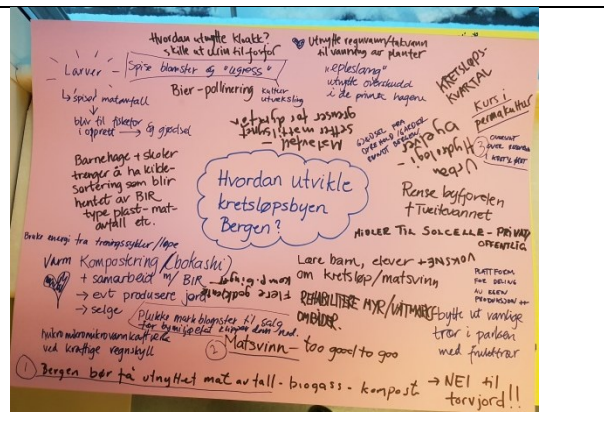 Hvordan utnytte kloakk?
skille ut urin til fosfor
Utnytte regnvann/takvann
til vanning av planter
Larver - Spise blomster og "ugress"
↳ spiser matavfall
↓
blir til fiskefôr
i oppdrett → og gjødsel
Bier - pollinering
kultur
utveksling
"epleslang"
utnytte overskudd
i de private hagene
KRETSLØPS-
KVARTAL
Kurs i
permakultur
Matsvinet
setter mattilsynet
grenser for dyrefôr
GJØDSEL FRA
RUNDT BERGEN
Urban
Hydrologi -
3
OVER
I KRETSLØPET
Barnehage + skoler
trenger å ha kilde-
sortering som blir
hentet av BIR
type plast - mat-
avfall etc.
Hvordan utvikle
kretsløpsbyen
Bergen?
Rense byfjorden
+ Tveitevannet
MIDLER TIL SOLCELLE - PRIVAT/
OFFENTLIG
Bruke energi fra treningssykler/løpe
Varm Kompostering (bokashi)
+ samarbeid m/ BIR
→ evt produsere jord
→ selge
Flere godkjente
komp.
Lære barn, elever + VOKSNE
om kretsløp/matsvinn
PLATTFORM
FOR DELING
AV EGEN
PRODUKSJON ++
REHABILITERE MYR/VÅTMARKS
OMRÅDER.
bytte ut vanlige
trær i parken
med frukttrær
Plukke markblomster til salg
for bymiljøetet
mikromikromikrovannkraftverk
ved kraftige regnskyll
2 Matsvinn - too good to go
1 Bergen bør få utnyttet matavfall - biogass - kompost → NEI til
torvjord!!